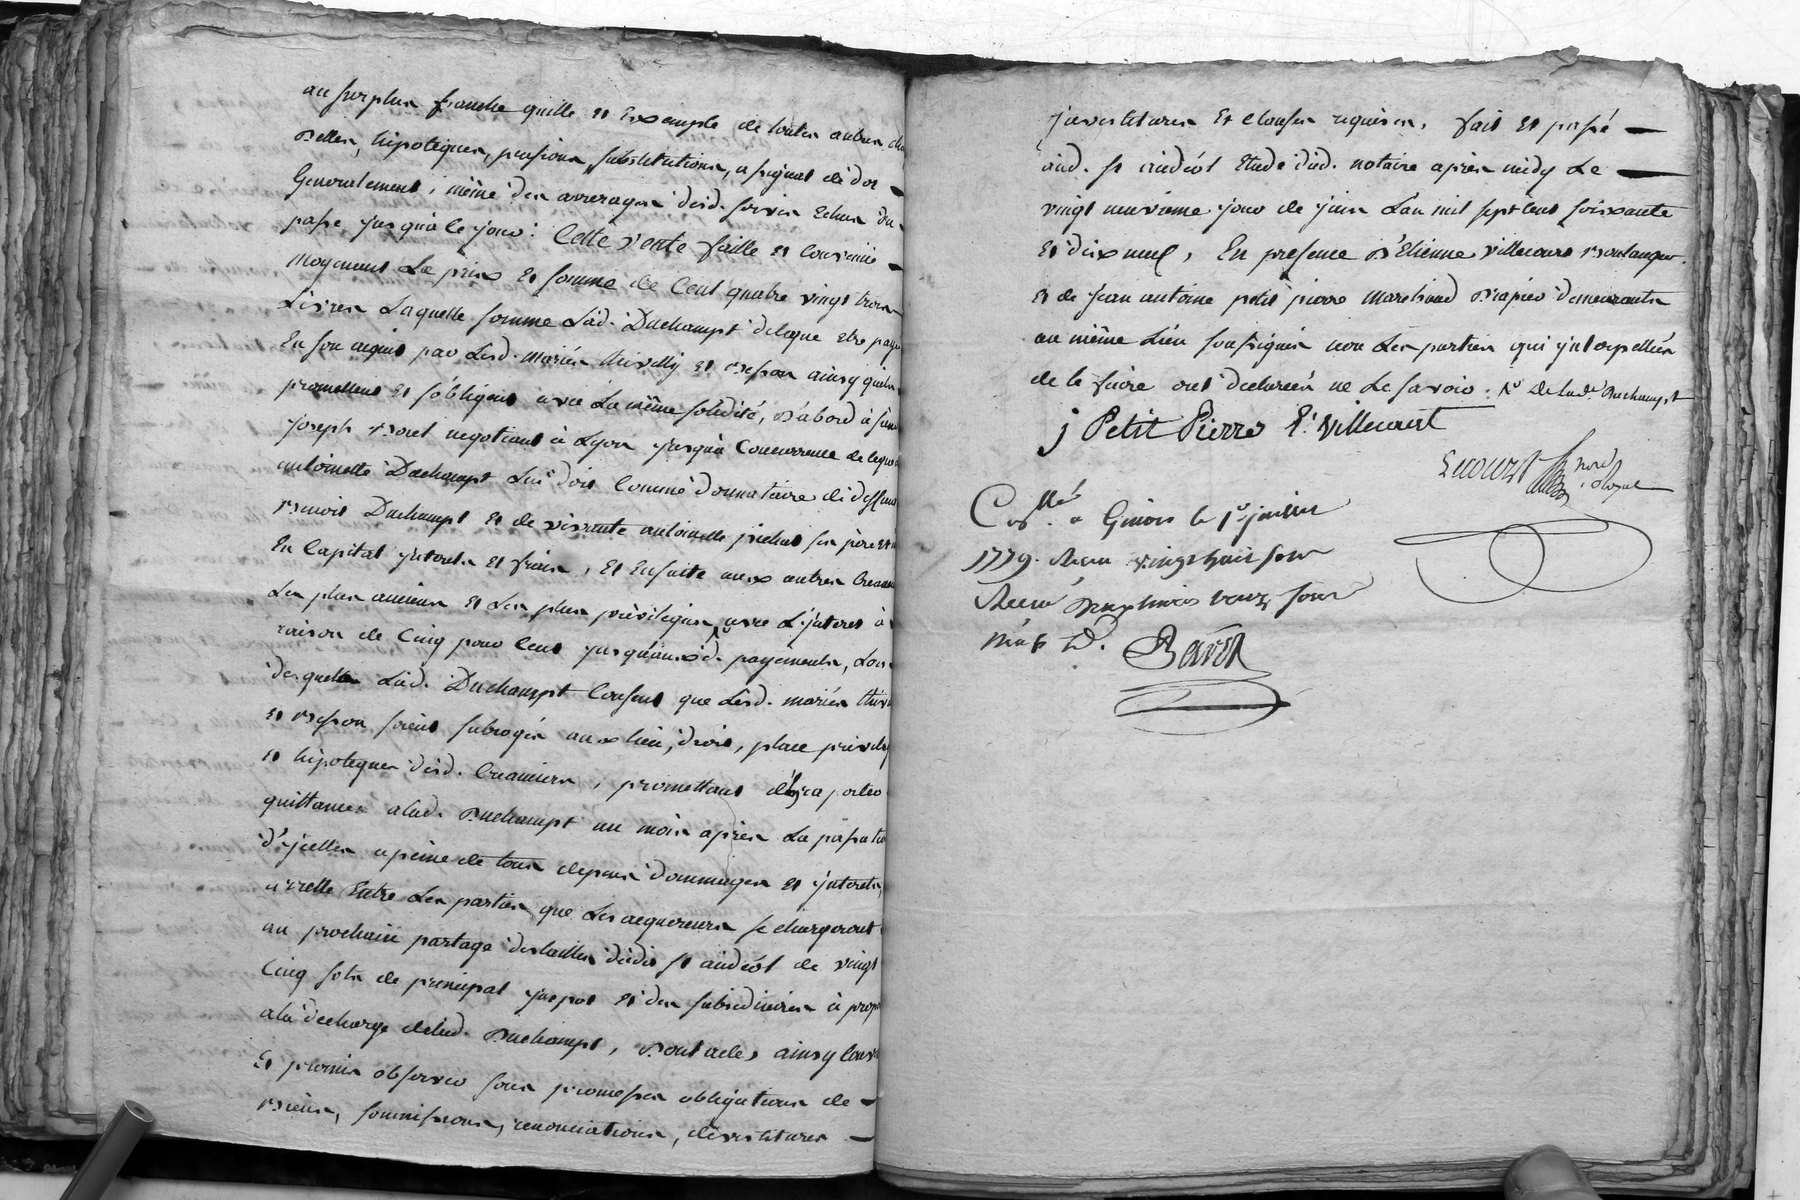 au surplus franche quitte et Exempte de toutes autres
Dettes, hipoteques, pensions, substitutions, assignat de dot
Generalement, même des arrerages desd. servis Echus du
passé jusqu'à ce jour: Cette vente faitte et convenüe
moyenant Le prix et somme de Cent quatre vingt trois
Livres Laquelle somme Lad. Duchampt delegue etre payée
En son acquit par Lesd. mariés thivilly et Besson ainsy qu'ils
promettent et s'obligent avec La même solidité, D'abord à
joseph Boiret negotiant à Lyon jusqu'à Concurrence de ce que
antoinette Duchampt Lui doit Comme donnataire de deffunt
Benoit Duchampt et de vivante antoinette pichat ses père et
En Capital jnterets et frais, Et Ensuite aux autres Creanciers
Les plus anciens et Les plus privilegiés, avec L'jnteret à
raison de Cinq pour Cent jusqu'auxd. payements, Lors
desquels Lad. Duchampt Consent que Lesd. mariés
et Besson soient subrogés aux lieu, droit, place
et hipoteques desd. Creanciers, promettant d'en raporter
quittances alad. Duchampt un mois après La passation
d'jcelles apeine de tous depens dommages et jnterets,
arretté Entre Les parties que Les acquereurs se chargeront
au prochain partage des tailles dudit St andéol de vingt
Cinq sols de principal jmpot et des subsidiaires à
ala decharge delad. Duchampt, Dont acte, ainsy
Et promis observer sous promesses obligations de
Biens, soumissions, renonciations, devestitures
jnvestitures Et clauses requises, fait et passé
aud. St andéol Etude dud. notaire après midy Le
vingt neuvieme jour de juin L'an mil sept cent soixante
Et dix neuf, En presence D'Etienne Villecourt Boulanger
et de jean antoine petit pierre Marchand Drapier demeurants
au même Lieu soussignés non Les parties qui jnterpellées
de le faire ont declareés ne Le savoir.
j Petit Pierre E. Villecourt
a Givors le 1er juillet
1779. Recu vingt huit sous